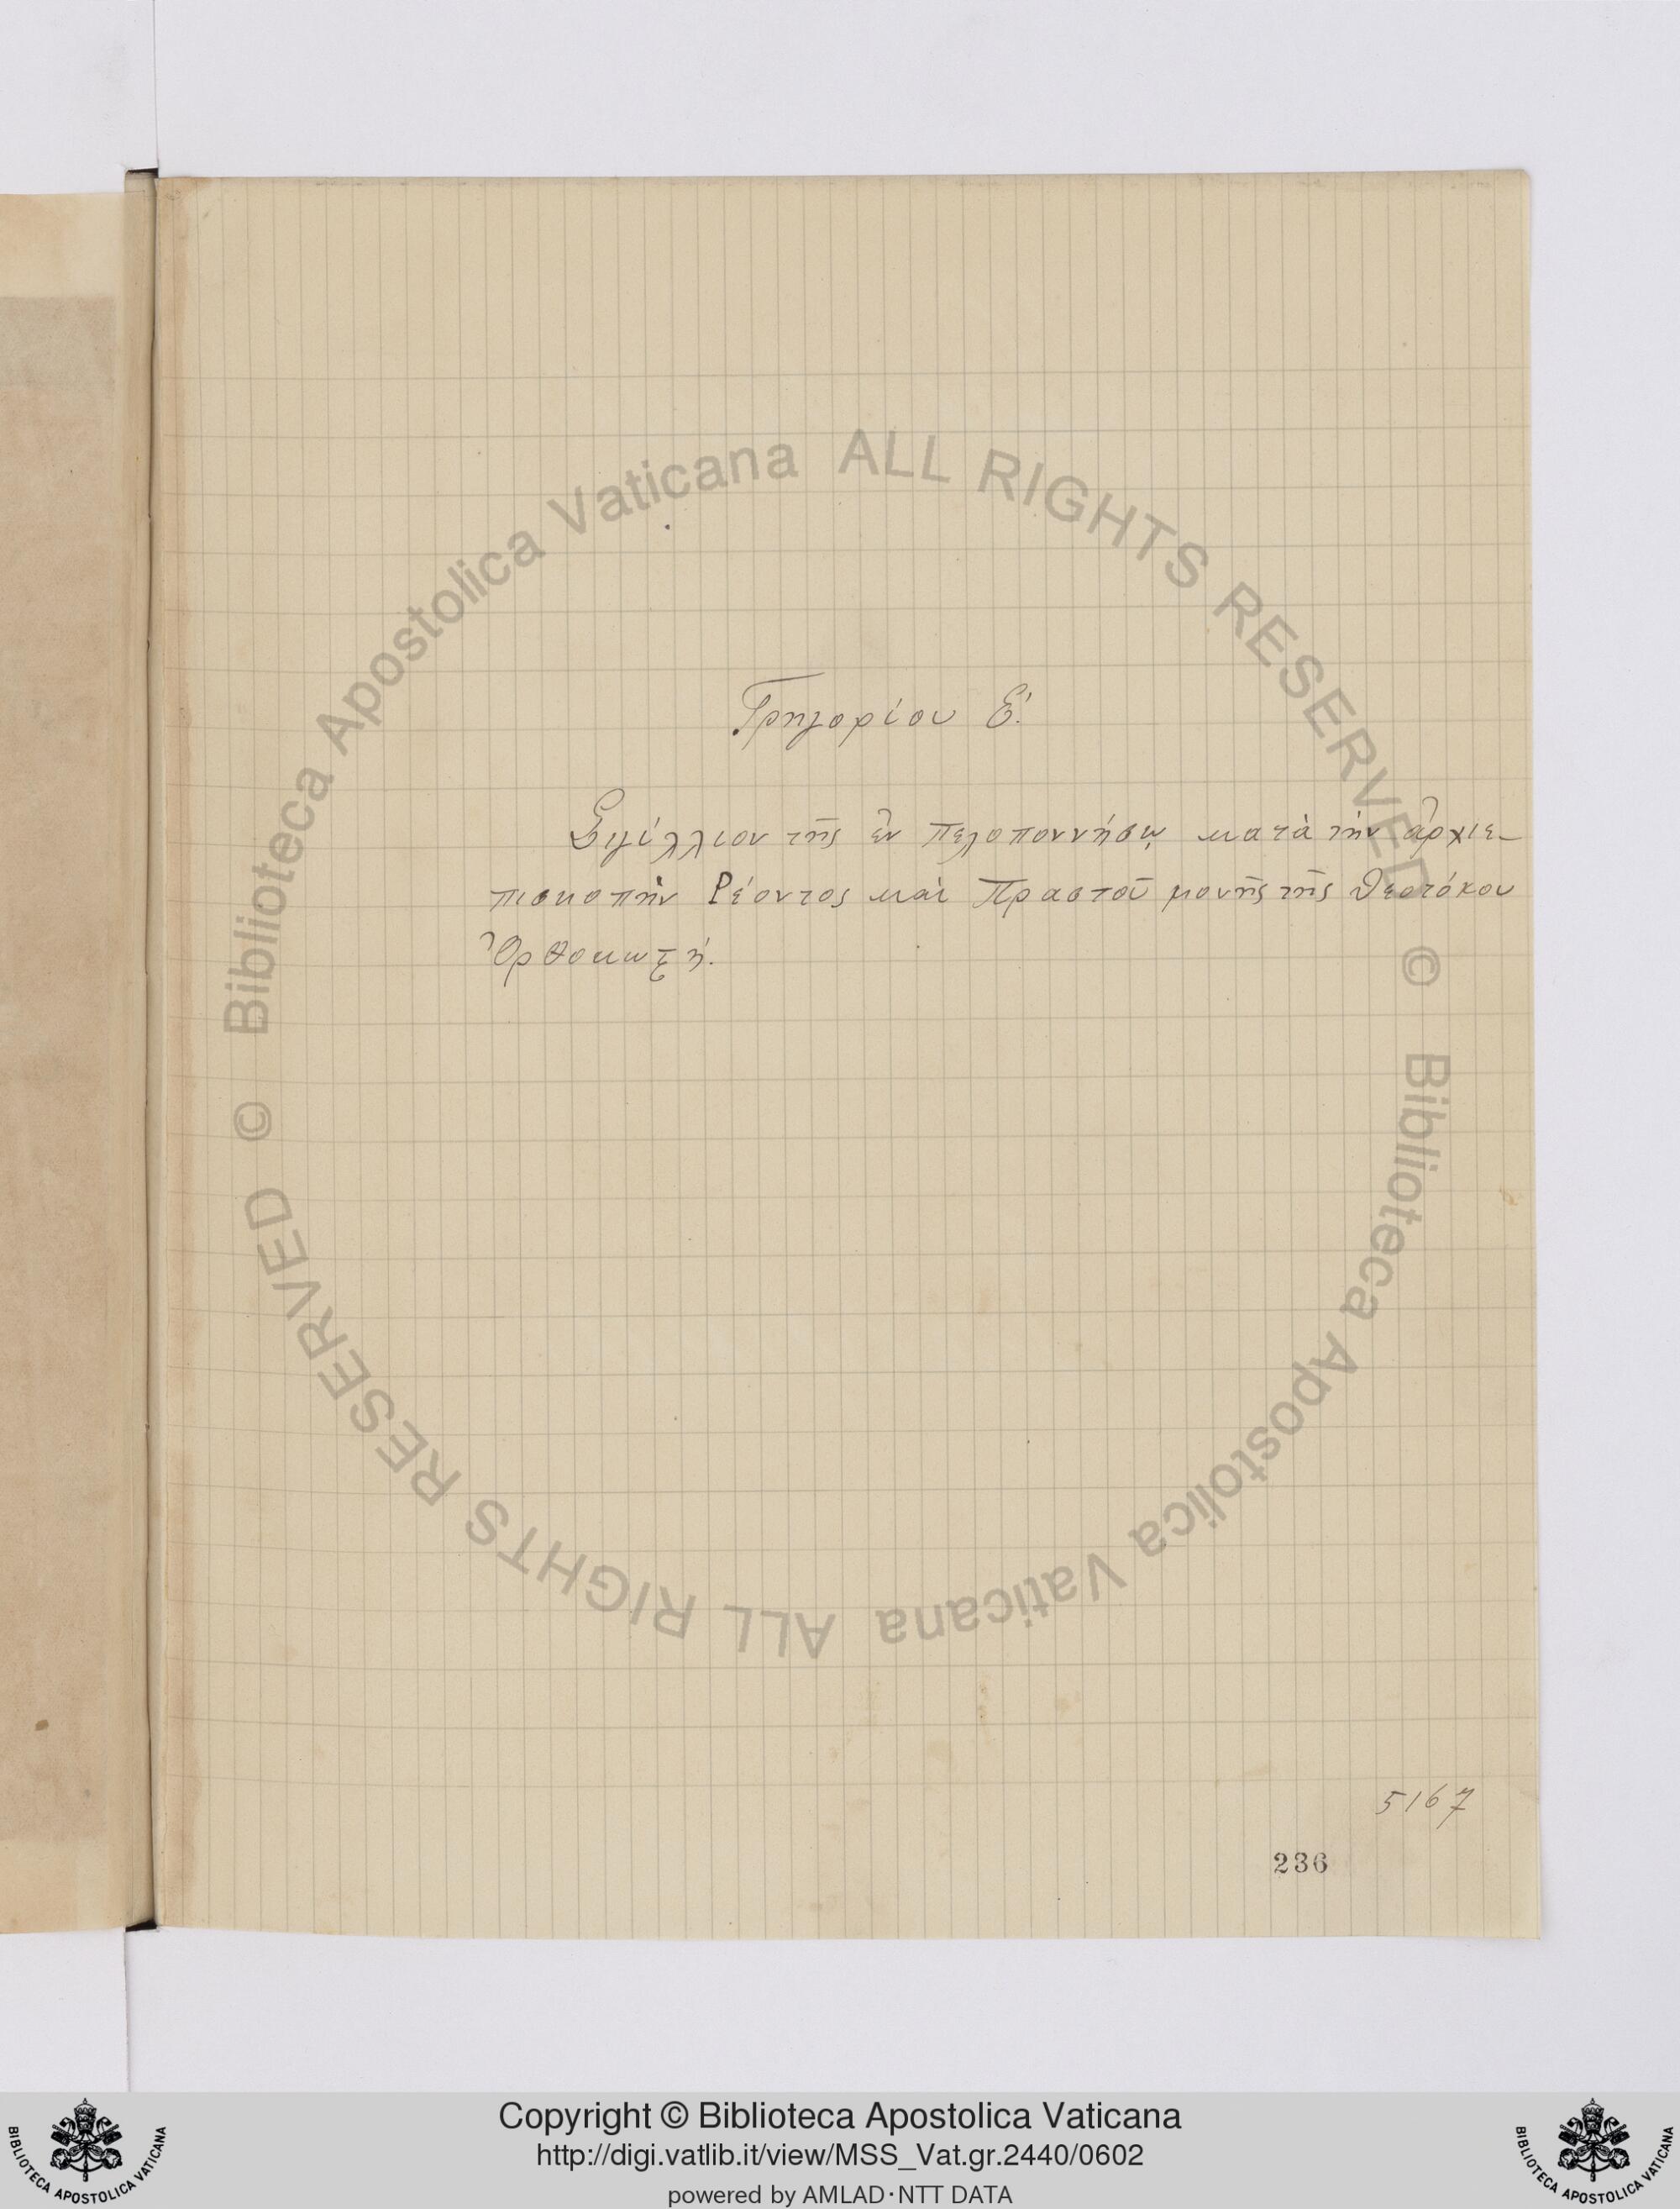 Γρηγορίου Ε΄.
Σιγίλλιον τῆς ἐν Πελοποννήσῳ κατὰ τὴν ἀρχιε-
πισκοπὴν Ρέοντος καὶ Πραστοῦ μονῆς τῆς Θεοτόκου
Ὀρθοκωστή.
5167
236
© Biblioteca Apostolica Vaticana ALL RIGHTS RESERVED
© Biblioteca Apostolica Vaticana ALL RIGHTS RESERVED
Copyright © Biblioteca Apostolica Vaticana
http://digi.vatlib.it/view/MSS_Vat.gr.2440/0602
powered by AMLAD·NTT DATA
BIBLIOTECA APOSTOLICA VATICANA
BIBLIOTECA APOSTOLICA VATICANA